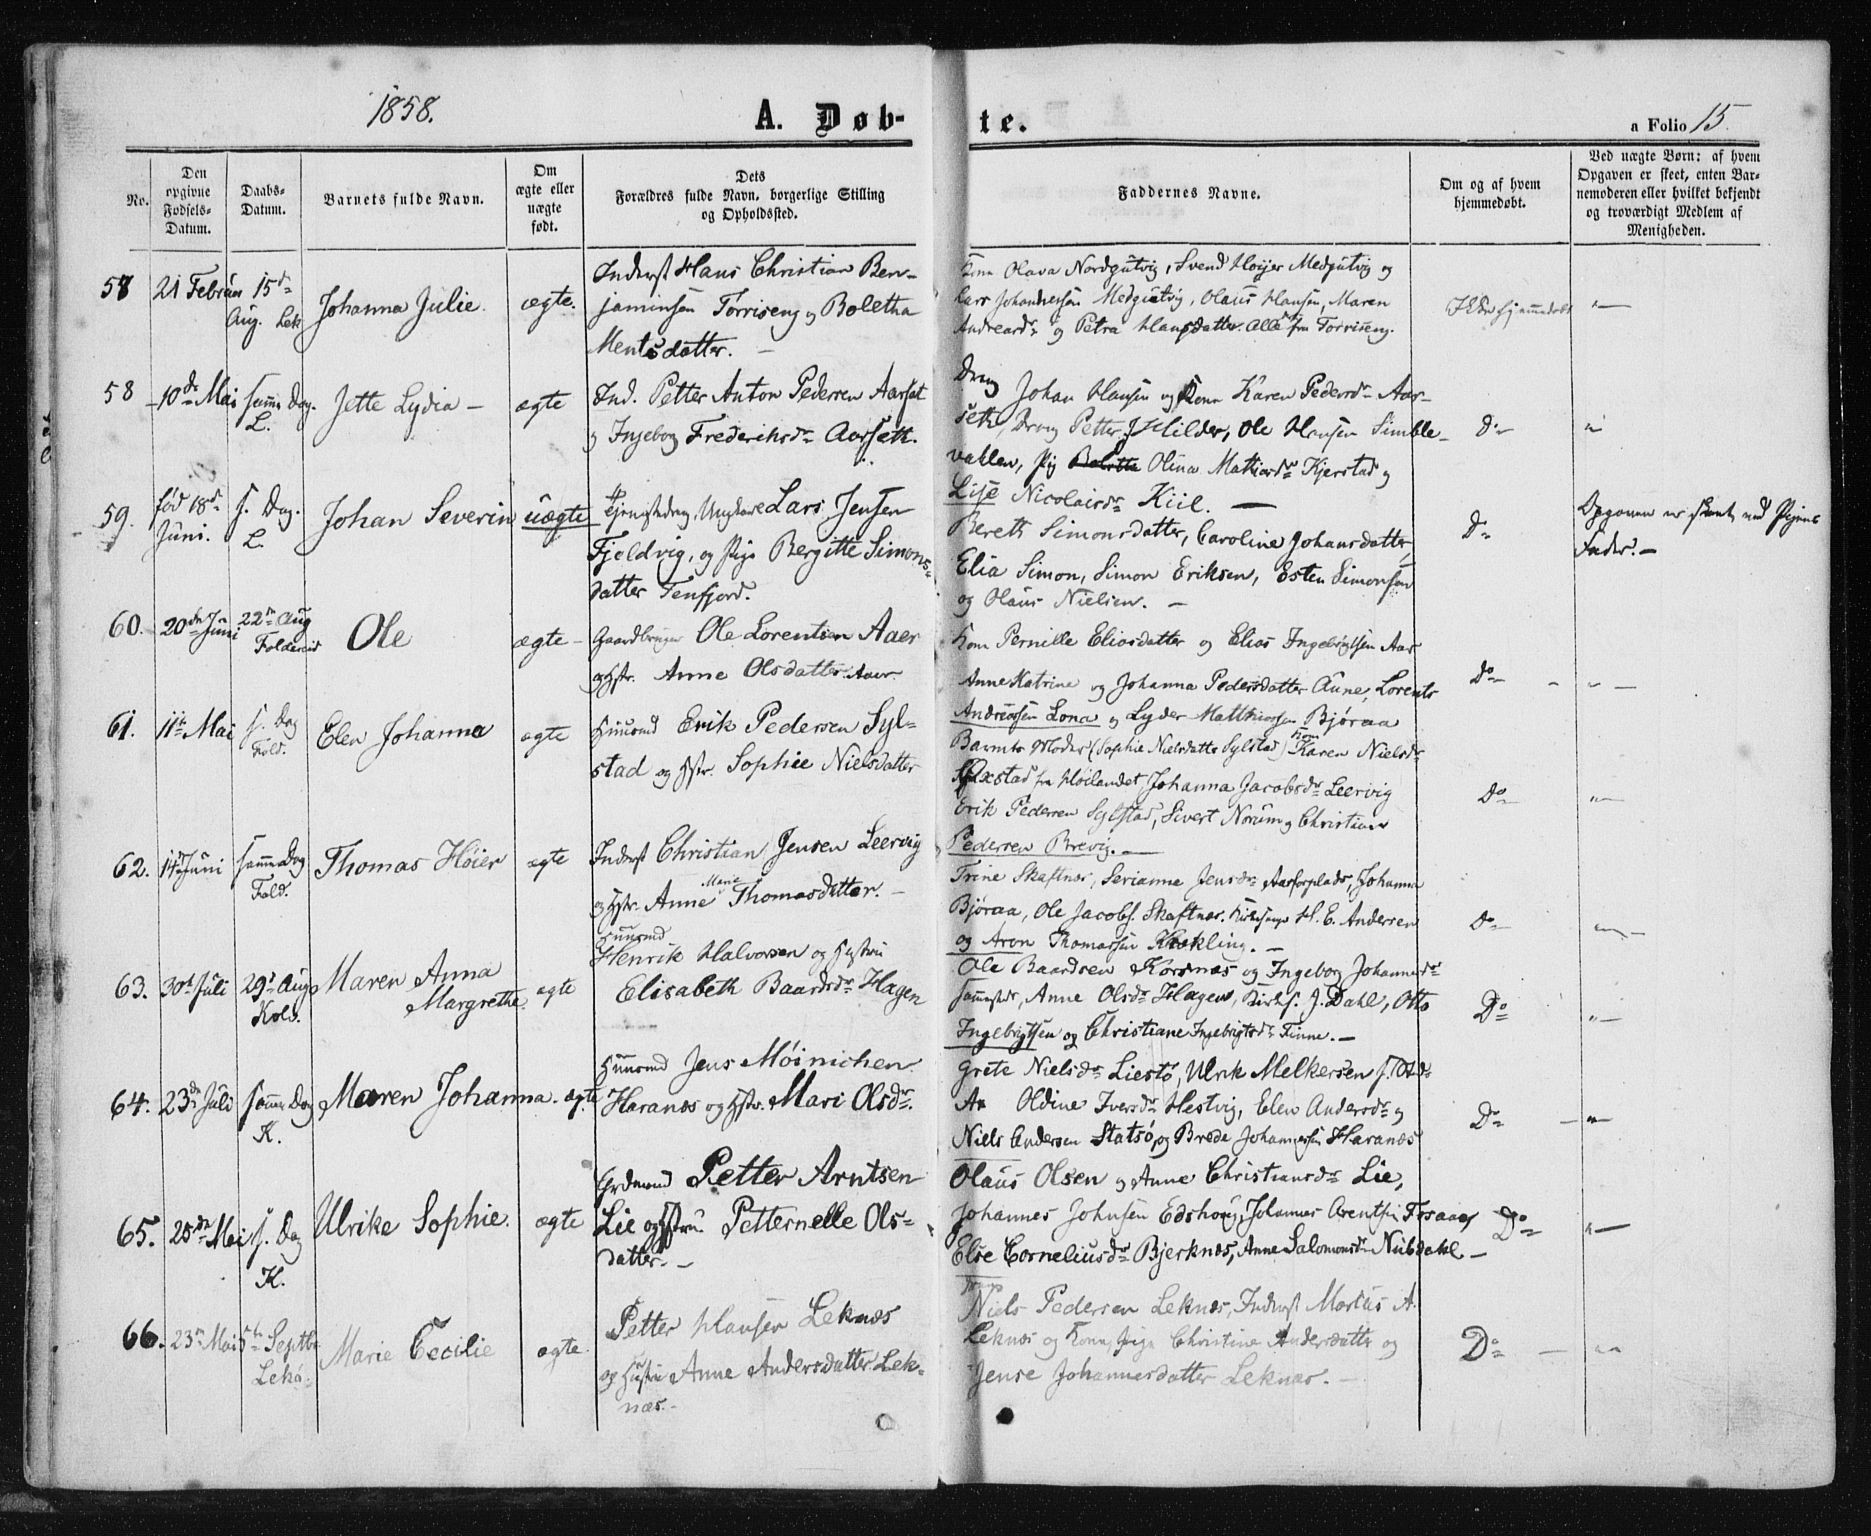 1858.
A. Døb-
te.
a Folio 15.
No.
Den opgivne Fødsels-Datum.
Daabs-Datum.
Barnets fulde Navn.
Om ægte eller uægte født.
Dets Forældres fulde Navn, borgerlige Stilling og Opholdssted.
Faddernes Navne.
Om og af hvem hjemmedøbt.
Ved uægte Børn: af hvem Opgaven er skeet, enten Barnemoderen eller hvilket bekjendt og troværdigt Medlem af Menigheden.
57 21 Februar 15d Aug. Lek Johanna Julie. ægte.
Inderst Hans Christian Ben-
jaminsen Torriseng og Boletha
Mentsdatter. —
Kone Olava Nordgutvig, Svend Høyer Medgutvig og
Lars Johannessen Medgutvig, Olaus Hansen, Maren
Andreasdr og Petra Hansdatter. Alle fra Torriseng.
Ikke hjemmedøbt
58 10de Mai samme Dag. L. Jette Lydia — ægte
Ind. Petter Anton Pedersen Aarset
og Ingebog Frederiksdr Aarsett.
Dreng Johan Hansen og Kone Karen Pedersdr Aar-
seth, Dreng Petter J Hilder, Ole Hansen Simble-
vahlen, Pig Olina Mathiasdr Kjerstad og
Lise Nicolaisdr Kiil. —
Do
59. fød 18d Juni. s. Dag. L. Johan Severin uægte
Tjenestedreng, Ungkarl Lars Jensen
Fjeldvig, og Pige Bergitte Simons-
datter Tenfjord.
Bereth Simonsdatter, Caroline Johansdatter,
Elia Simon, Simon Eriksen, Esten Simonsen
og Olaus Nielsen. —
Do
Opgaven er skeet ved Pigens
Fader. —
60. 20de Juni 22n Aug Foldereid Ole ægte —
Gaardbruger Ole Lorentsen Aaer
og Hstr. Anne Olsdatter Aaer
Kone Pernille Eliasdatter og Elias Ingebrigtsen Aar
Anne Katrine og Johanna Pedersdatter Aune, Lorents
Andreassen Lona og Lyder Matthiassen Bjøraa
Do
61. 11te Mai s. Dag Fold. Elen Johanna ægte
Huusmd Erik Pedersen Syl-
stad og Hstr. Sophie Nielsdatter
Barnets Moder (Sophie Nielsdatter Sylstad) Kone Karen Nielsdr
fra Høilandet Johanna Jacobsdr Leervig
Erik Pedersen Sylstad, Sivert Norum og Christian
Pedersen Brevig. —
Do
62. 14d Juni samme Dag Fold. Thomas Høier ægte
Inderst Christian Jensen Leervig
og Hstr. Anne Marie Thomasdatter. —
Trine Skaftnes, Serianne Jensdr Aarforplads, Johanna
Bjøraa, Ole Jacobs. Skaftnes. Kirkesanger H. E. Andersen
og Aron Thomassen Krækling. —
Do
63. 30te Juli 29d Aug Kolv. Maren Anna
Margrethe. ægte
Huusmd
Henrik Halvorsen og Hustru
Elisabeth Baardsdr Hagen
Ole Baardsen Korsnæs og Ingebog Johannesdr
sammesteds, Anne Olsdr Hagen, Kirkes. J. Dahl, Otto
Ingebrigtsen og Christiane Ingebrigtsdr Finne. —
Do
64. 23de Juli samme Dag K. Maren Johanna. ægte
Huusmd Jens Möinichen
Haranæs og Hstr. Mari Olsdr.
Grete Nielsdr Liestø, Ulrik Melkersen
Oldine Iversdr Hestvig, Elen Andersdr og
Niels Andersen Statsø, og Brede Johannessen Haranæs
Do
65. 25de Mai s. Dag K. Ulrike Sophie. ægte
Petter Arntsen
Lie og Hstru Petternelle Ols-
datter. —
Olaus Olsen og Anne Christiansdr Lie,
Johannes Johnsen Edshoug, Johannes Arentsen Fosaaes
Else Corneliusdr Bjerknæs, Anne Salomonsdr Nubdahl —
Do
66. 23n Mai 5te Septbr Lekø. Marie Cecilie ægte.
Petter Hansen Leknæs
og Hustru Anne Andersdatter Lek-
næs. —
Niels Pedersen Leknæs, Inderst Martus A.
Leknæs og Kone, Pige Christine Andersdatter og
Jense Johannesdatter Leknæs. —
Do